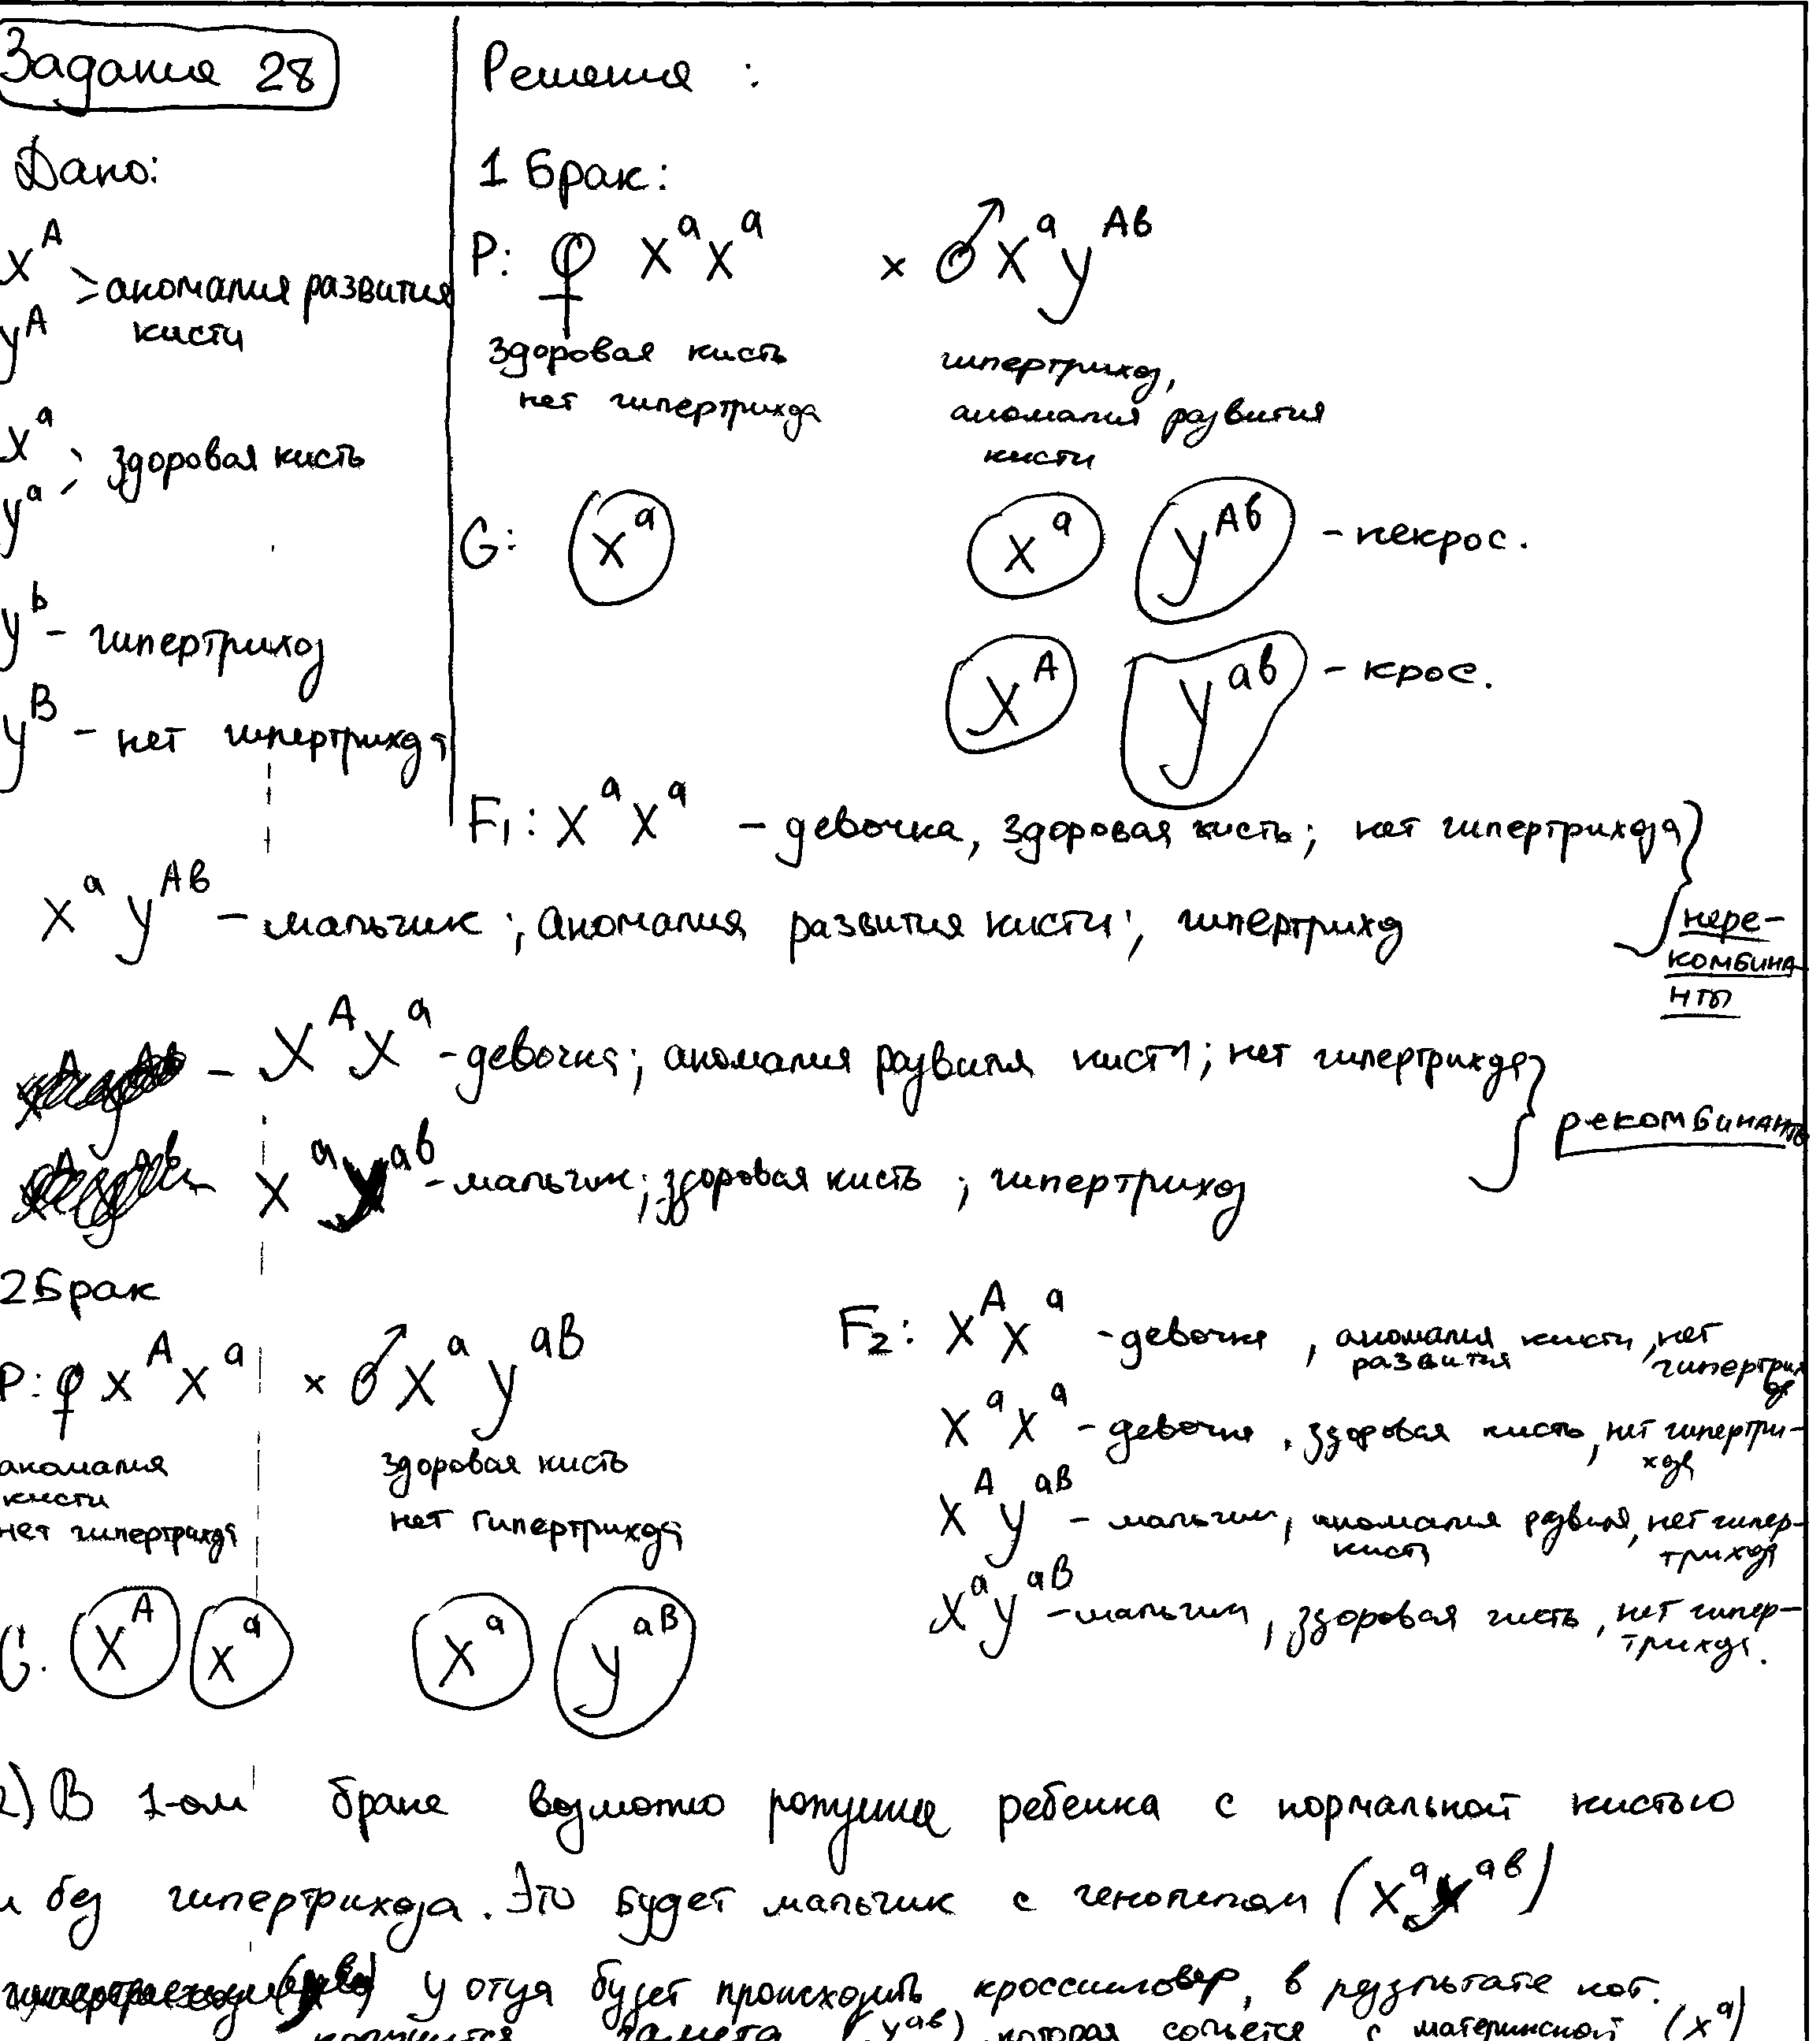 Задание 28
Решения :
Дано:
X^A
y^A
> аномалия развития
кисти
X^a
y^a
здоровая кисть
y^b - гипертрихоз
y^B - нет гипертрихоза
1 Брак:
P: ♀ X^a X^a × ♂ X^a y^Ab
здоровая кисть
нет гипертрихоза
гипертрихоз,
аномалия развития
кисти
G: X^a X^a y^Ab - некрос.
X^A y^ab - крос.
F1: X^a X^a - девочка, здоровая кисть; нет гипертрихоза
X^a y^Ab - мальчик; аномалия развития кисти; гипертрихоз
нере-
комбина
нты
- X^A X^a - девочка; аномалия развития кисти; нет гипертрихоза
X^a y^ab - мальчик; здоровая кисть; гипертрихоз
рекомбинанты
2 Брак
P: ♀ X^A X^a × ♂ X^a y^aB
аномалия
кисти
нет гипертрихоза
здоровая кисть
нет гипертрихоза
G. X^A X^a X^a y^aB
F2: X^A X^a - девочка, аномалия развития кисти, нет гипертрихоз
X^a X^a - девочка, здоровая кисть, нет гипертри-
хоза
X^A y^aB - мальчик, аномалия развития кисти, нет гипер-
трихоза
X^a y^aB - мальчик, здоровая кисть, нет гипер-
трихоза.
2) В 1-ом браке возможно рождение ребенка с нормальной кистью
и без гипертрихоза. Это будет мальчик с генотипом (X^a y^ab)
у отца будет происходить кроссинговер, в результате кот.
получится гамета (y^ab) которая сольется с материнской (X^a)